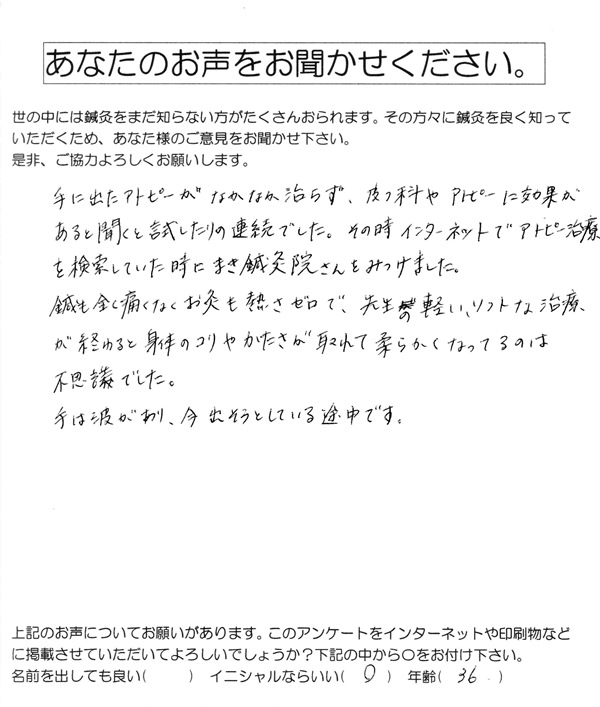 あなたのお声をお聞かせください。
世の中には鍼灸をまだ知らない方がたくさんおられます。その方々に鍼灸を良く知って
いただくため、あなた様のご意見をお聞かせ下さい。
是非、ご協力よろしくお願いします。
手に出たアトピーが なかなか治らず、皮フ科や アトピーに効果が
あると聞くと試したりの連続でした。その時インターネットでアトピー治療
を検索していた時にまき鍼灸院さんをみつけました。
鍼も全く痛くなくお灸も熱さゼロで、先生の軽い、ソフトな治療
が終わると身体のコリやかたさが取れて柔らかくなってるのは
不思議でした。
手は波があり、今出そうとしている途中です。
上記のお声についてお願いがあります。このアンケートをインターネットや印刷物など
に掲載させていただいてよろしいでしょうか？下記の中から○をお付け下さい。
名前を出しても良い(　　) イニシャルならいい( ○ ) 年齢( 36 )